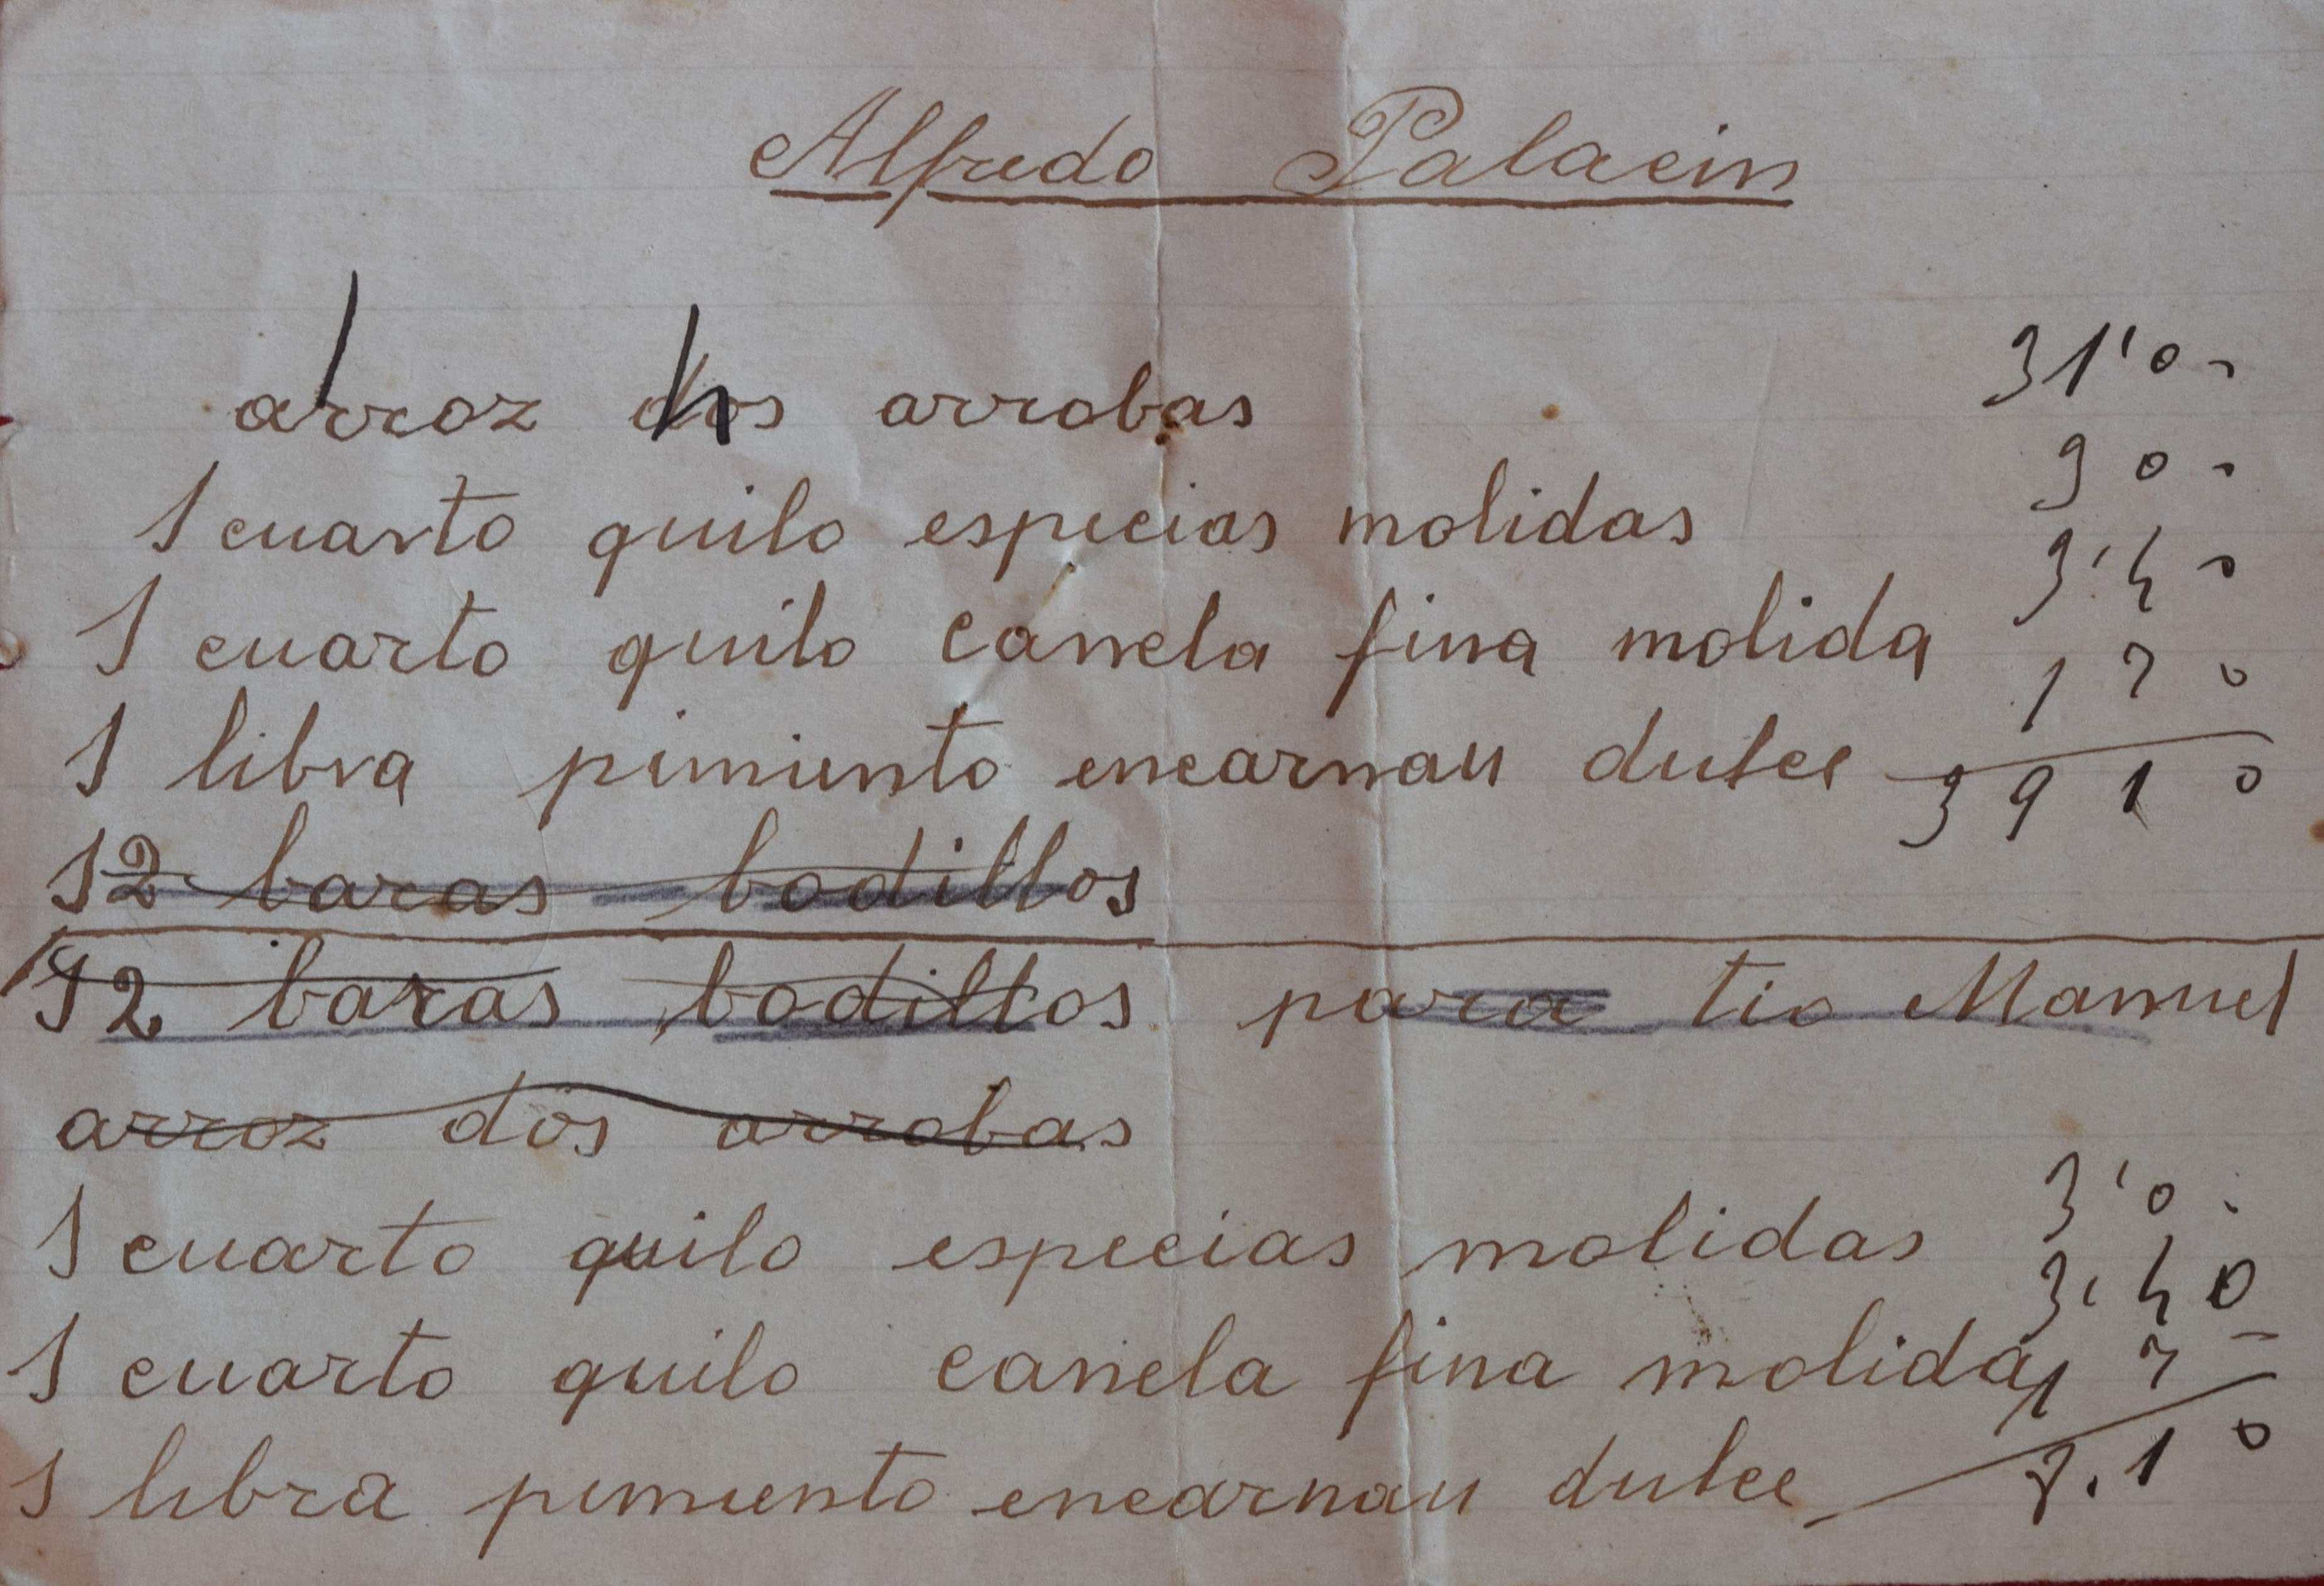 Alfredo Palacin
arroz dos 4 arrobas 31'00
1 cuarto quilo especias molidas 300
1 cuarto quilo canela fina molida 3'40
1 libra pimiento encarnau dulce 170
3910
12 baras bodillos
12 baras bodillos para tio Manuel
arroz dos arrobas
1 cuarto quilo especias molidas 3'00
1 cuarto quilo canela fina molida 3'40
1 libra pimiento encarnau dulce 17
8.10